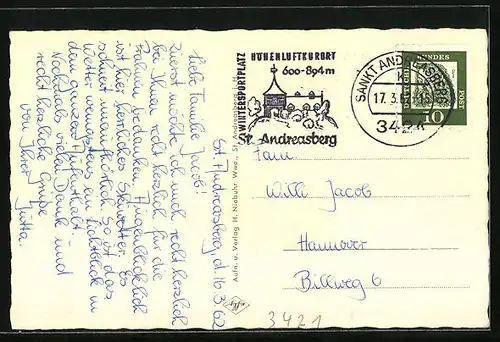 St. Andreasberg, d. 16.3.62
Liebe Familie Jacob!
Zuerst möchte ich mich recht herzlich
bei Ihnen recht herzlich für die
Pralinen bedanken. Augenblicklich
ist hier herrliches Skiwetter. Es
schneit unaufhörlich. So ist das
Wetter wenigstens ein Lichtblick in
dem ganzen Aufenthalt.
Nochmals vielen Dank und
recht herzliche Grüße
von Ihrer Jutta.
Aufn. u. Verlag H. Niebuhr Wwe., St. Andreasberg
WINTERSPORTPLATZ
HÖHENLUFTKURORT
600-894m
St. Andreasberg
SANKT ANDREASBERG
17.3.62
BUNDES
POST
10
Fam.
Willi Jacob
Hannover
Billweg 6
3421